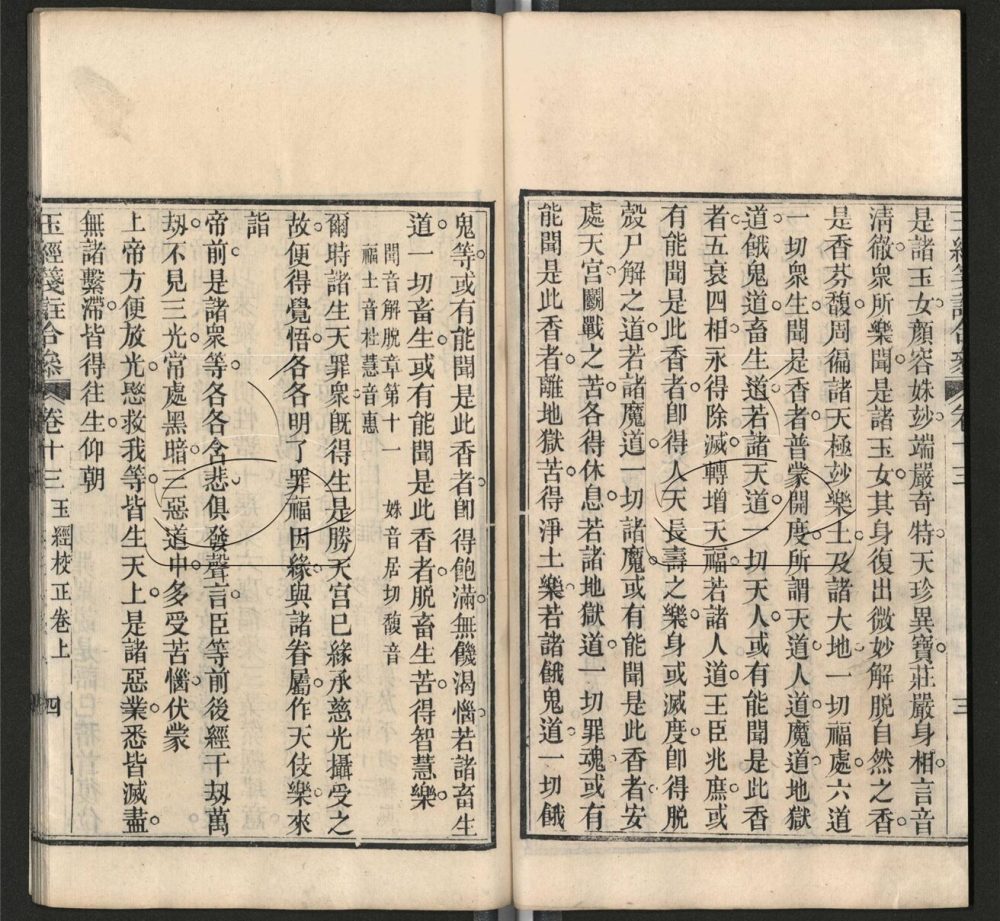 是諸玉女顏容姝玅端嚴奇特天珍異寶莊嚴身相言音
清徹衆所樂聞是諸玉女其身復出微妙解脫自然之香
是香芬馥周徧諸天極玅樂土及諸大地一切福處六道
一切衆生聞是香者普蒙開度所謂天道人道魔道地獄
道餓鬼道畜生道若諸天道一切天人或有能聞是此香
者五衰四相永得除滅轉增天福若諸人道王臣兆庶或
有能聞是此香者卽得人天長壽之樂身或滅度卽得脫
殼尸解之道若諸魔道一切諸魔或有能聞是此香者安
處天宮鬭戰之苦各得休息若諸地獄道一切罪魂或有
能聞是此香者離地獄苦得淨土樂若諸餓鬼道一切餓
三
鬼等或有能聞是此香者卽得飽滿無饑渴惱若諸畜生
道一切畜生或有能聞是此香者脫畜生苦得智慧樂
聞音解脫章第十一 姝音居切馥音
福土音杜慧音惠
爾時諸生天罪衆旣得生是勝天宮已緣承慈光攝受之
故便得覺悟各各明了罪福因緣與諸眷屬作天伎樂來
詣
帝前是諸衆等各各含悲俱發聲言臣等前後經千刼萬
刼不見三光常處黑暗三惡道中多受苦惱伏蒙
上帝方便放光愍救我等皆生天上是諸惡業悉皆滅盡
無諸繫滯皆得往生仰朝
玉經箋註合叅 卷十三 玉經校正卷上 四